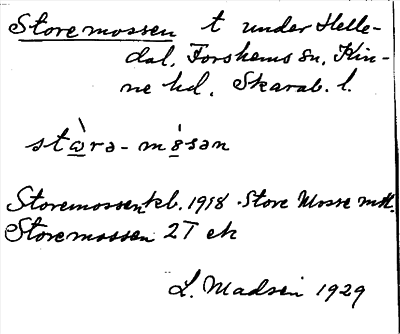 Storemossen t under Helle-
dal, Forshems sn, Kin-
ne hd, Skarab. l.
stὼra-mósan
Storemossen kb. 1918 Store Mosse mtl.
Storemossen 2T ek
L. Madsén 1929